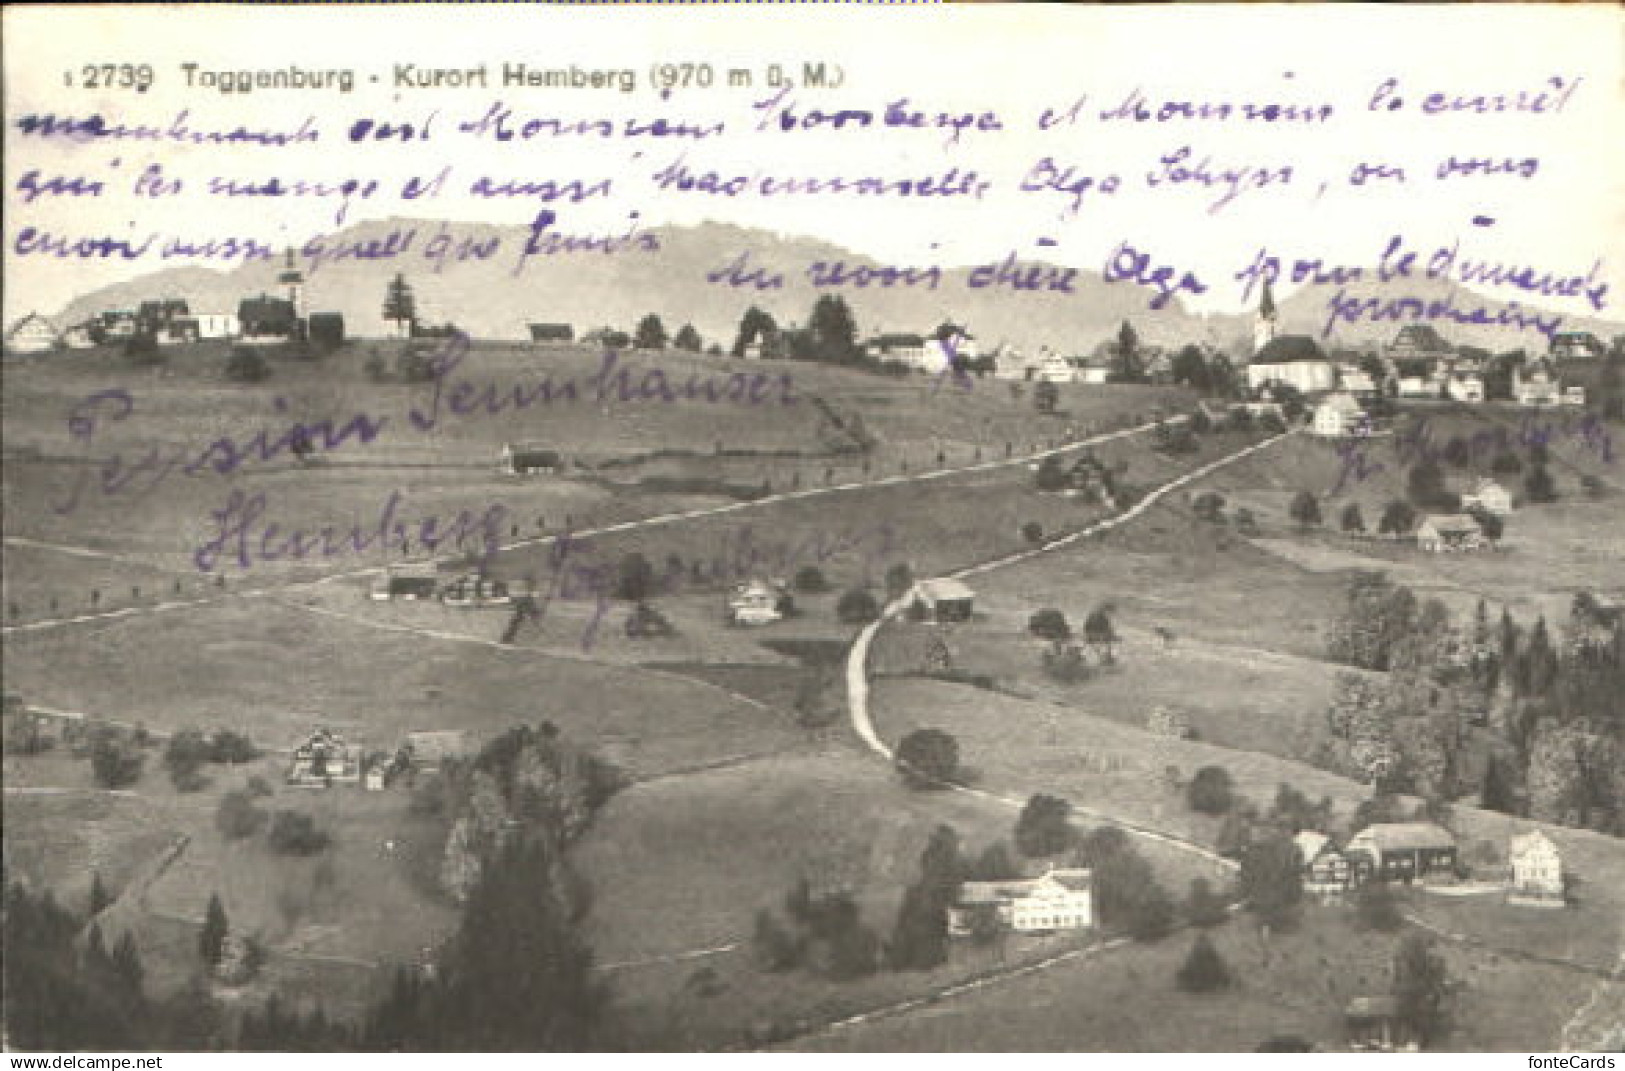 2739 Toggenburg - Kurort Hemberg (970 m ü. M.)
maintenant c'est Monsieur et Monsieur le
qui les mange et aussi Mademoiselle Olga, on vous
envoi aussi quell que fruits
Au revoir chère Olga pour le dimanche
prochaine
Pension Sennhauser
Hemberg
Toggenburg
fonteCards